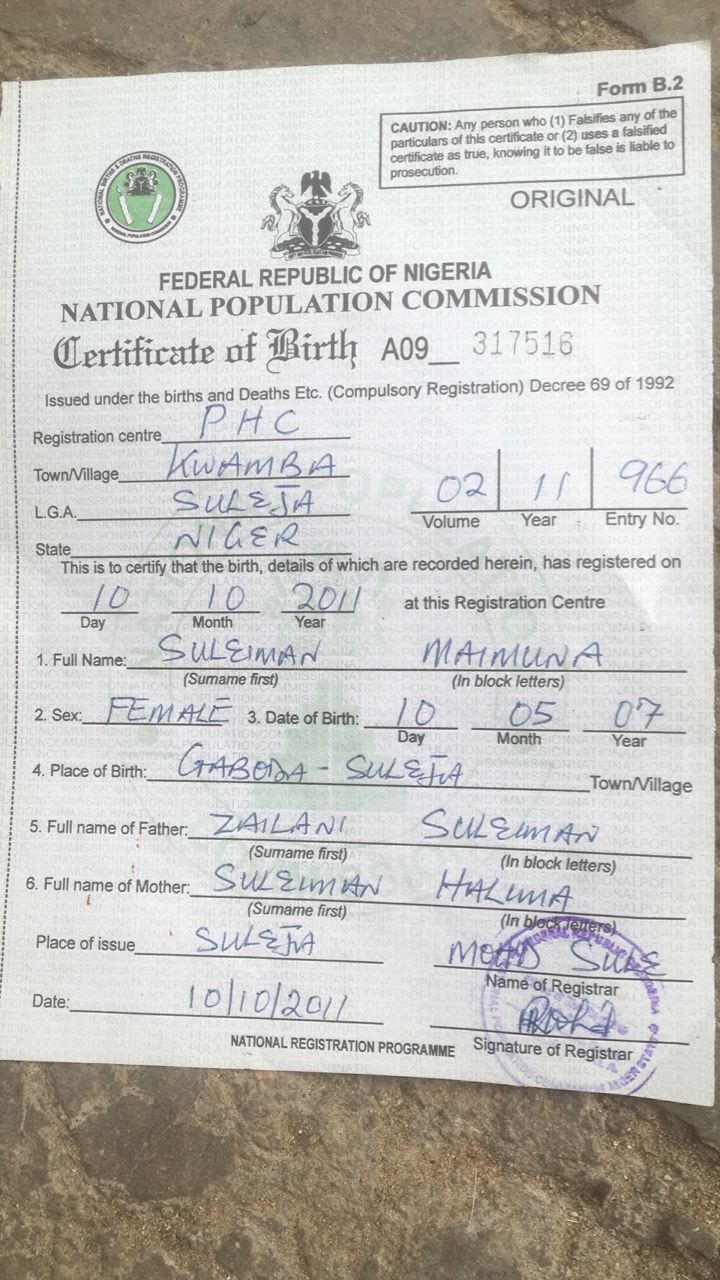 Form B.2
CAUTION: Any person who (1) Falsifies any of the
particulars of this certificate or (2) uses a falsified
certificate as true, knowing it to be false is liable to
prosecution.
ORIGINAL
NATIONAL BIRTHS & DEATHS REGISTRATION PROGRAMME
NATIONAL POPULATION COMMISSION
FEDERAL REPUBLIC OF NIGERIA
NATIONAL POPULATION COMMISSION
Certificate of Birth A09__ 317516
Issued under the births and Deaths Etc. (Compulsory Registration) Decree 69 of 1992
Registration centre PHC
Town/Village KWAMBA
L.G.A. SULEJA
State NIGER
02 11 966
Volume Year Entry No.
This is to certify that the birth, details of which are recorded herein, has registered on
10 10 2011 at this Registration Centre
Day Month Year
1. Full Name: SULEIMAN MAIMUNA
(Surname first) (In block letters)
2. Sex: FEMALE 3. Date of Birth: 10 05 07
Day Month Year
4. Place of Birth: GABODA - SULEJA Town/Village
5. Full name of Father: ZAILANI SULEIMAN
(Surname first) (In block letters)
6. Full name of Mother: SULEIMAN HALIMA
(Surname first) (In block letters)
Place of issue SULEJA MOHD SULE
Name of Registrar
Date: 10/10/2011
NATIONAL REGISTRATION PROGRAMME Signature of Registrar